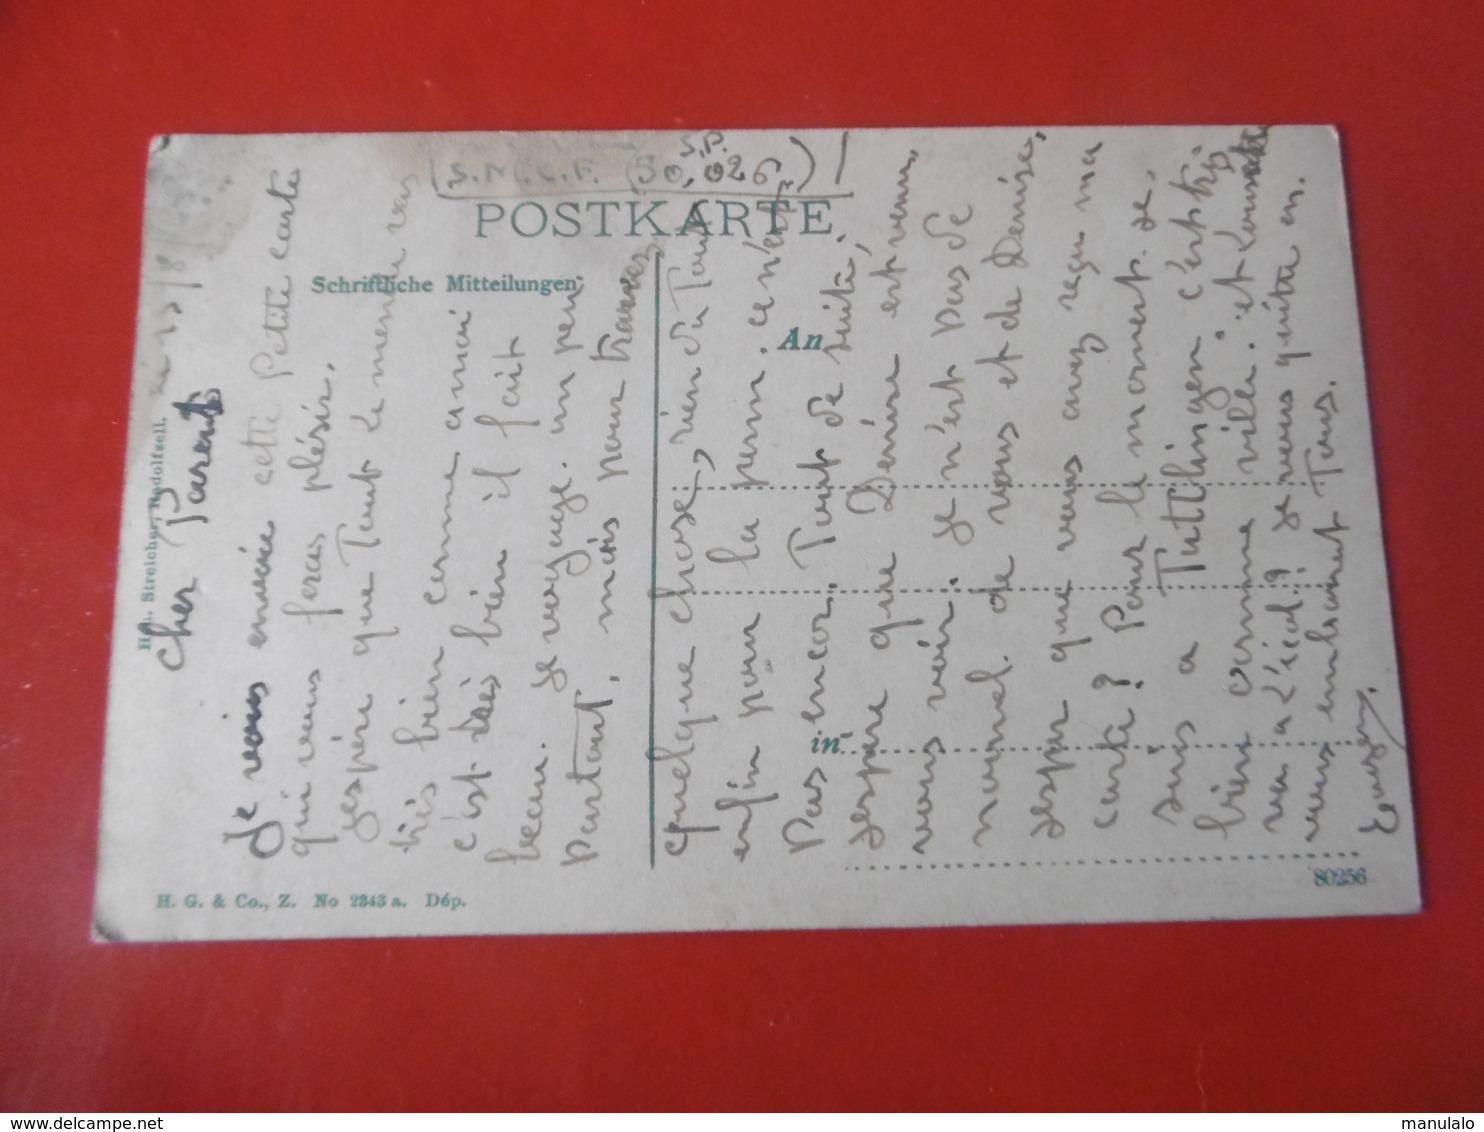 S.P.
S.N.C.F. (50.026)
POSTKARTE
Schriftliche Mitteilungen
An
in
Streicher, Radolfzell.
H. G. & Co., Z. No 2343 a. Dép.
80256
le 15/8/
Cher Parents
Je viens envoie cette Petite carte
qui vous feras plésir.
J'espére que Tout le monde vas
très bien comme a moi
c'est très bien il fait
beau. Je voyage. un peu
partout, mais pour trouver
quelque chose, rien du Tout
enfin pour la perm. ce n'est
Pas encor. Tout de suite,
J'espere que Denise est venu
vous voir. Je n'est pas de
nouvel. de vous et de Denise,
J'esper que vous avez reçu ma
carte? Pour le moment. Je
suis a Tuttlingen c'est
bien comme ville. et
va a L'écol? Je vous quitte en
vous embrassant Tous.